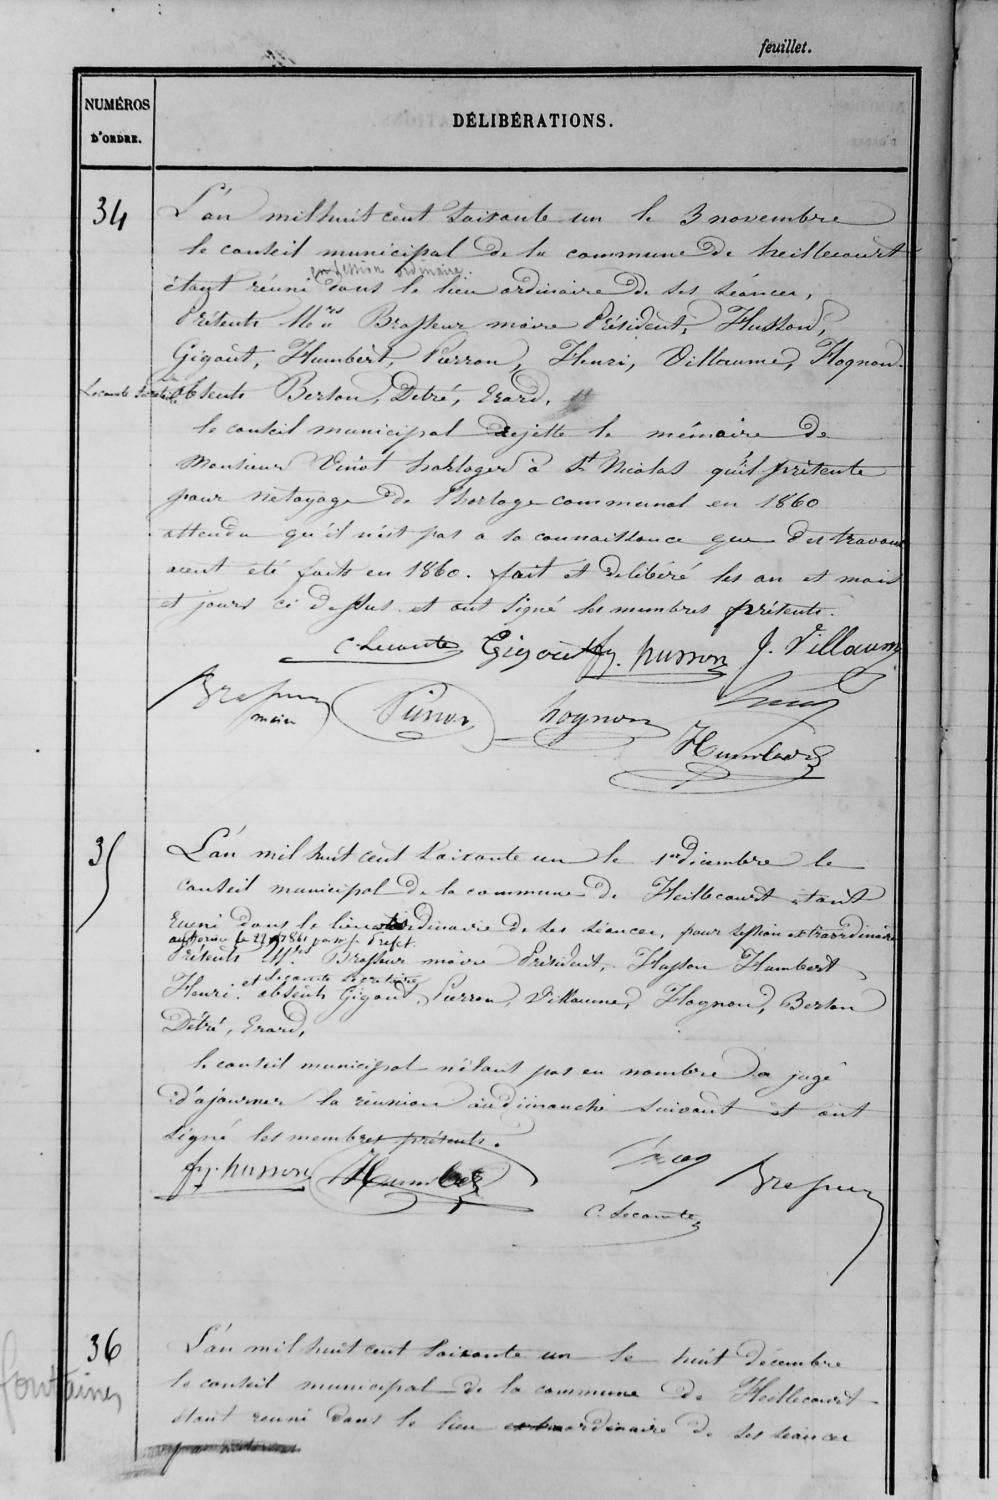 feuillet.
NUMÉROS
D'ORDRE.
DÉLIBÉRATIONS.
34
L'an mil huit cent soixante un le 3 novembre
le conseil municipal de la commune de heillecourt
en session ordinaire.
étant réuni dans le lieu ordinaire de ses séances,
Présents Mrs Brasseur maire Président, Husson,
Gigout, Humbert, Pierron, Henri, Villaume, Hognon.
Lecomte Secrétaire
absents Berson, Detré, Erard.
le conseil municipal rejette le mémoire de
monsieur Vinot horloger à St Nicolas qu'il présente
pour nétoyage de l'horloge communal en 1860
attendu qu'il n'est pas a sa connaissance que des travaux
aient été faits en 1860. fait et délibéré les an et mois
et jours ci dessus et ont signé les membres présents.
C. Lecomte Gigout fr. husson J. Villaume
Brasseur
maire
Pierron hognon
Humbert
35
L'an mil huit cent soixante un le 1er décembre le
conseil municipal de la commune de Heillecourt étant
réuni dans le lieu ordinaire de ses séances, pour session extraordinaire
autorisée le 1861 par mr le Préfet.
Présents Mrs Brasseur maire Président, Husson Humbert
et Lecomte Secrétaire
Henri. absents Gigout, Pierron, Villaume, Hognon, Berson
Détré, Erard,
le conseil municipal n'étant pas en nombre a jugé
d'ajourner la réunion au dimanche suivant et ont
signé les membres présents.
fr. husson Humbert
Brasseur
C. Lecomte
36
fontaines
L'an mil huit cent soixante un le huit décembre
le conseil municipal de la commune de Heillecourt
étant réuni dans le lieu extraordinaire de ses séances